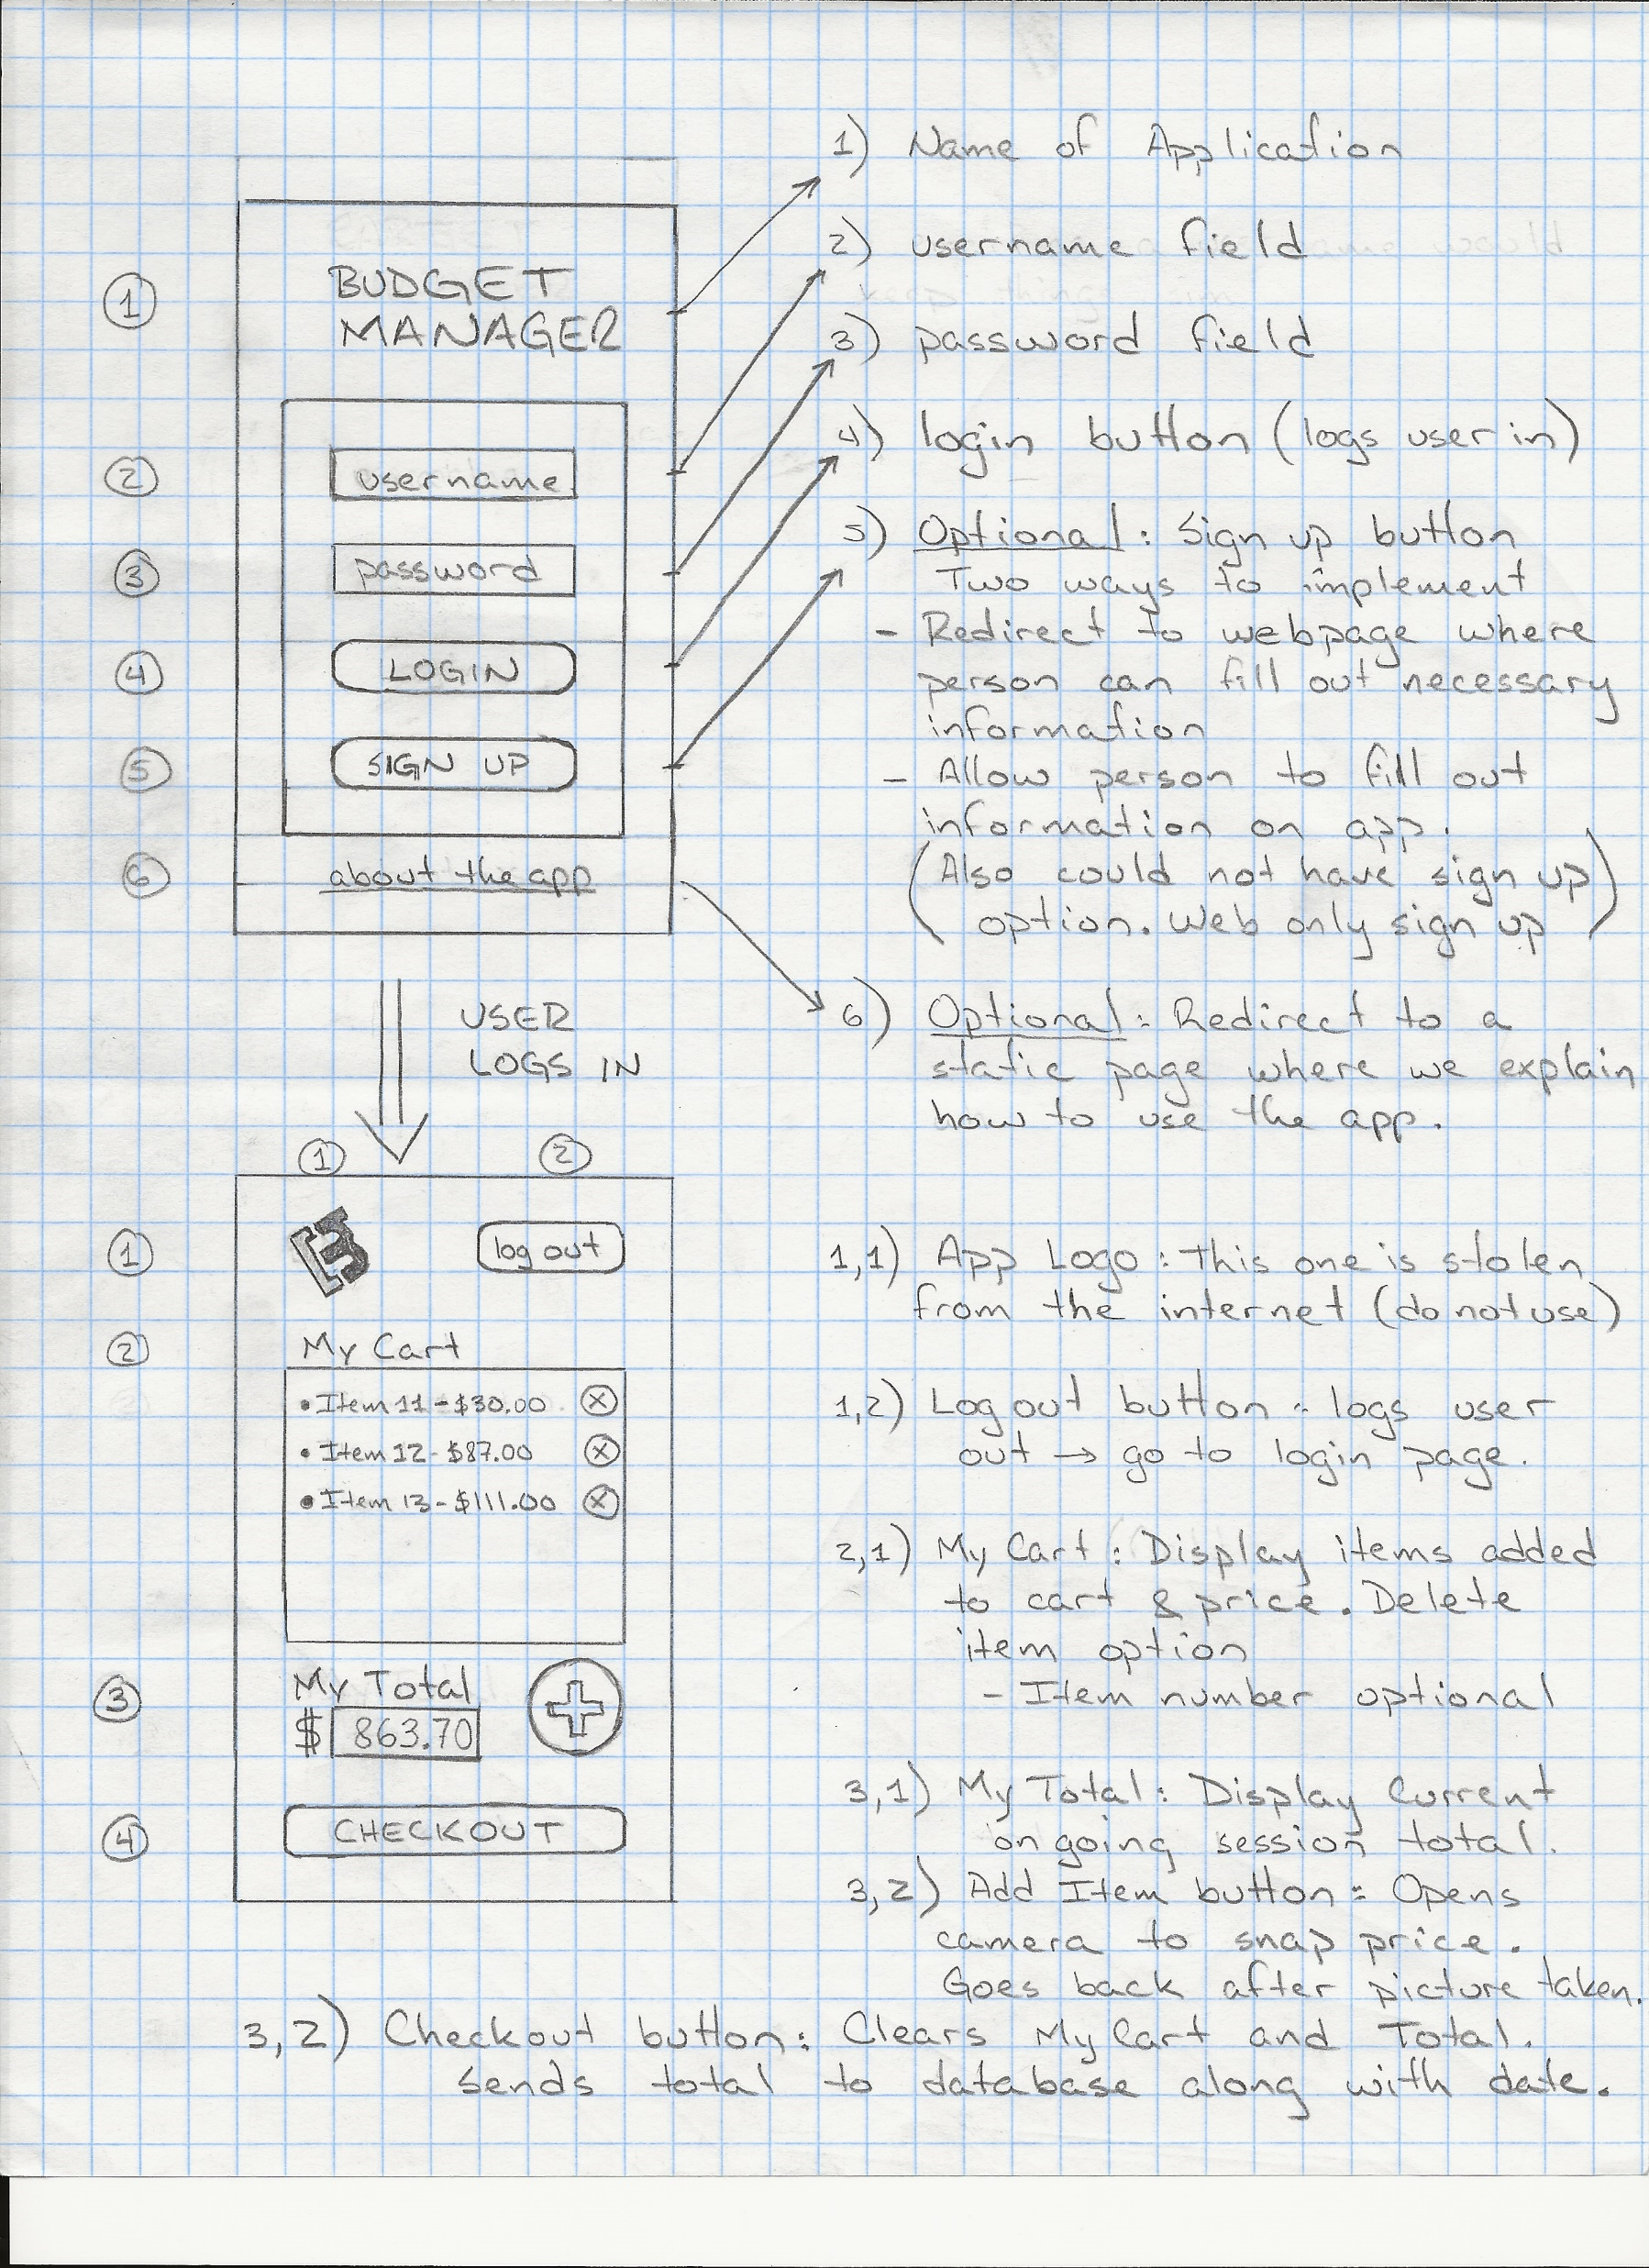 1) Name of Application
2) username field
3) password field
4) login button (logs user in)
5) Optional: Sign up button
Two ways to implement
- Redirect to webpage where
person can fill out necessary
information
- Allow person to fill out
information on app.
(Also could not have sign up
option. Web only sign up)
6) Optional: Redirect to a
static page where we explain
how to use the app.
1
BUDGET
MANAGER
2
username
3
password
4
LOGIN
5
SIGN UP
6
about the app
USER
LOGS IN
1 2
1
log out
2
My Cart
• Item 11 - $30.00 X
• Item 12 - $87.00 X
• Item 13 - $111.00 X
3
My Total
$ 863.70
4
CHECKOUT
1,1) App Logo: This one is stolen
from the internet (do not use)
1,2) Log out button: logs user
out → go to login page.
2,1) My Cart: Display items added
to cart & price. Delete
item option
- Item number optional
3,1) My Total: Display Current
ongoing session total.
3,2) Add Item button: Opens
camera to snap price.
Goes back after picture taken.
3,2) Checkout button: Clears My Cart and Total.
Sends total to database along with date.